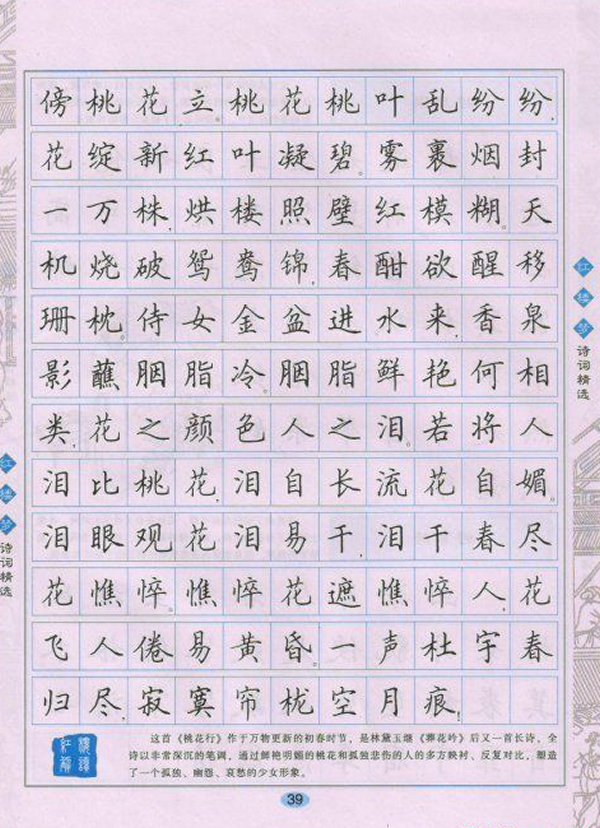 傍桃花立。桃花桃叶乱纷纷,
花绽新红叶凝碧。雾裹烟封
一万株,烘楼照壁红模糊。天
机烧破鸳鸯锦,春酣欲醒移
珊枕。侍女金盆进水来,香泉
影蘸胭脂冷。胭脂鲜艳何相
类,花之颜色人之泪。若将人
泪比桃花,泪自长流花自媚。
泪眼观花泪易干,泪干春尽
花憔悴。憔悴花遮憔悴人,花
飞人倦易黄昏。一声杜宇春
归尽,寂寞帘栊空月痕!
这首《桃花行》作于万物更新的初春时节,是林黛玉继《葬花吟》后又一首长诗。全
诗以非常深沉的笔调,通过鲜艳明媚的桃花和孤独悲伤的人的多方映衬、反复对比,塑造
了一个孤独、幽怨、哀愁的少女形象。
39
红楼梦诗词精选
红楼梦诗词精选